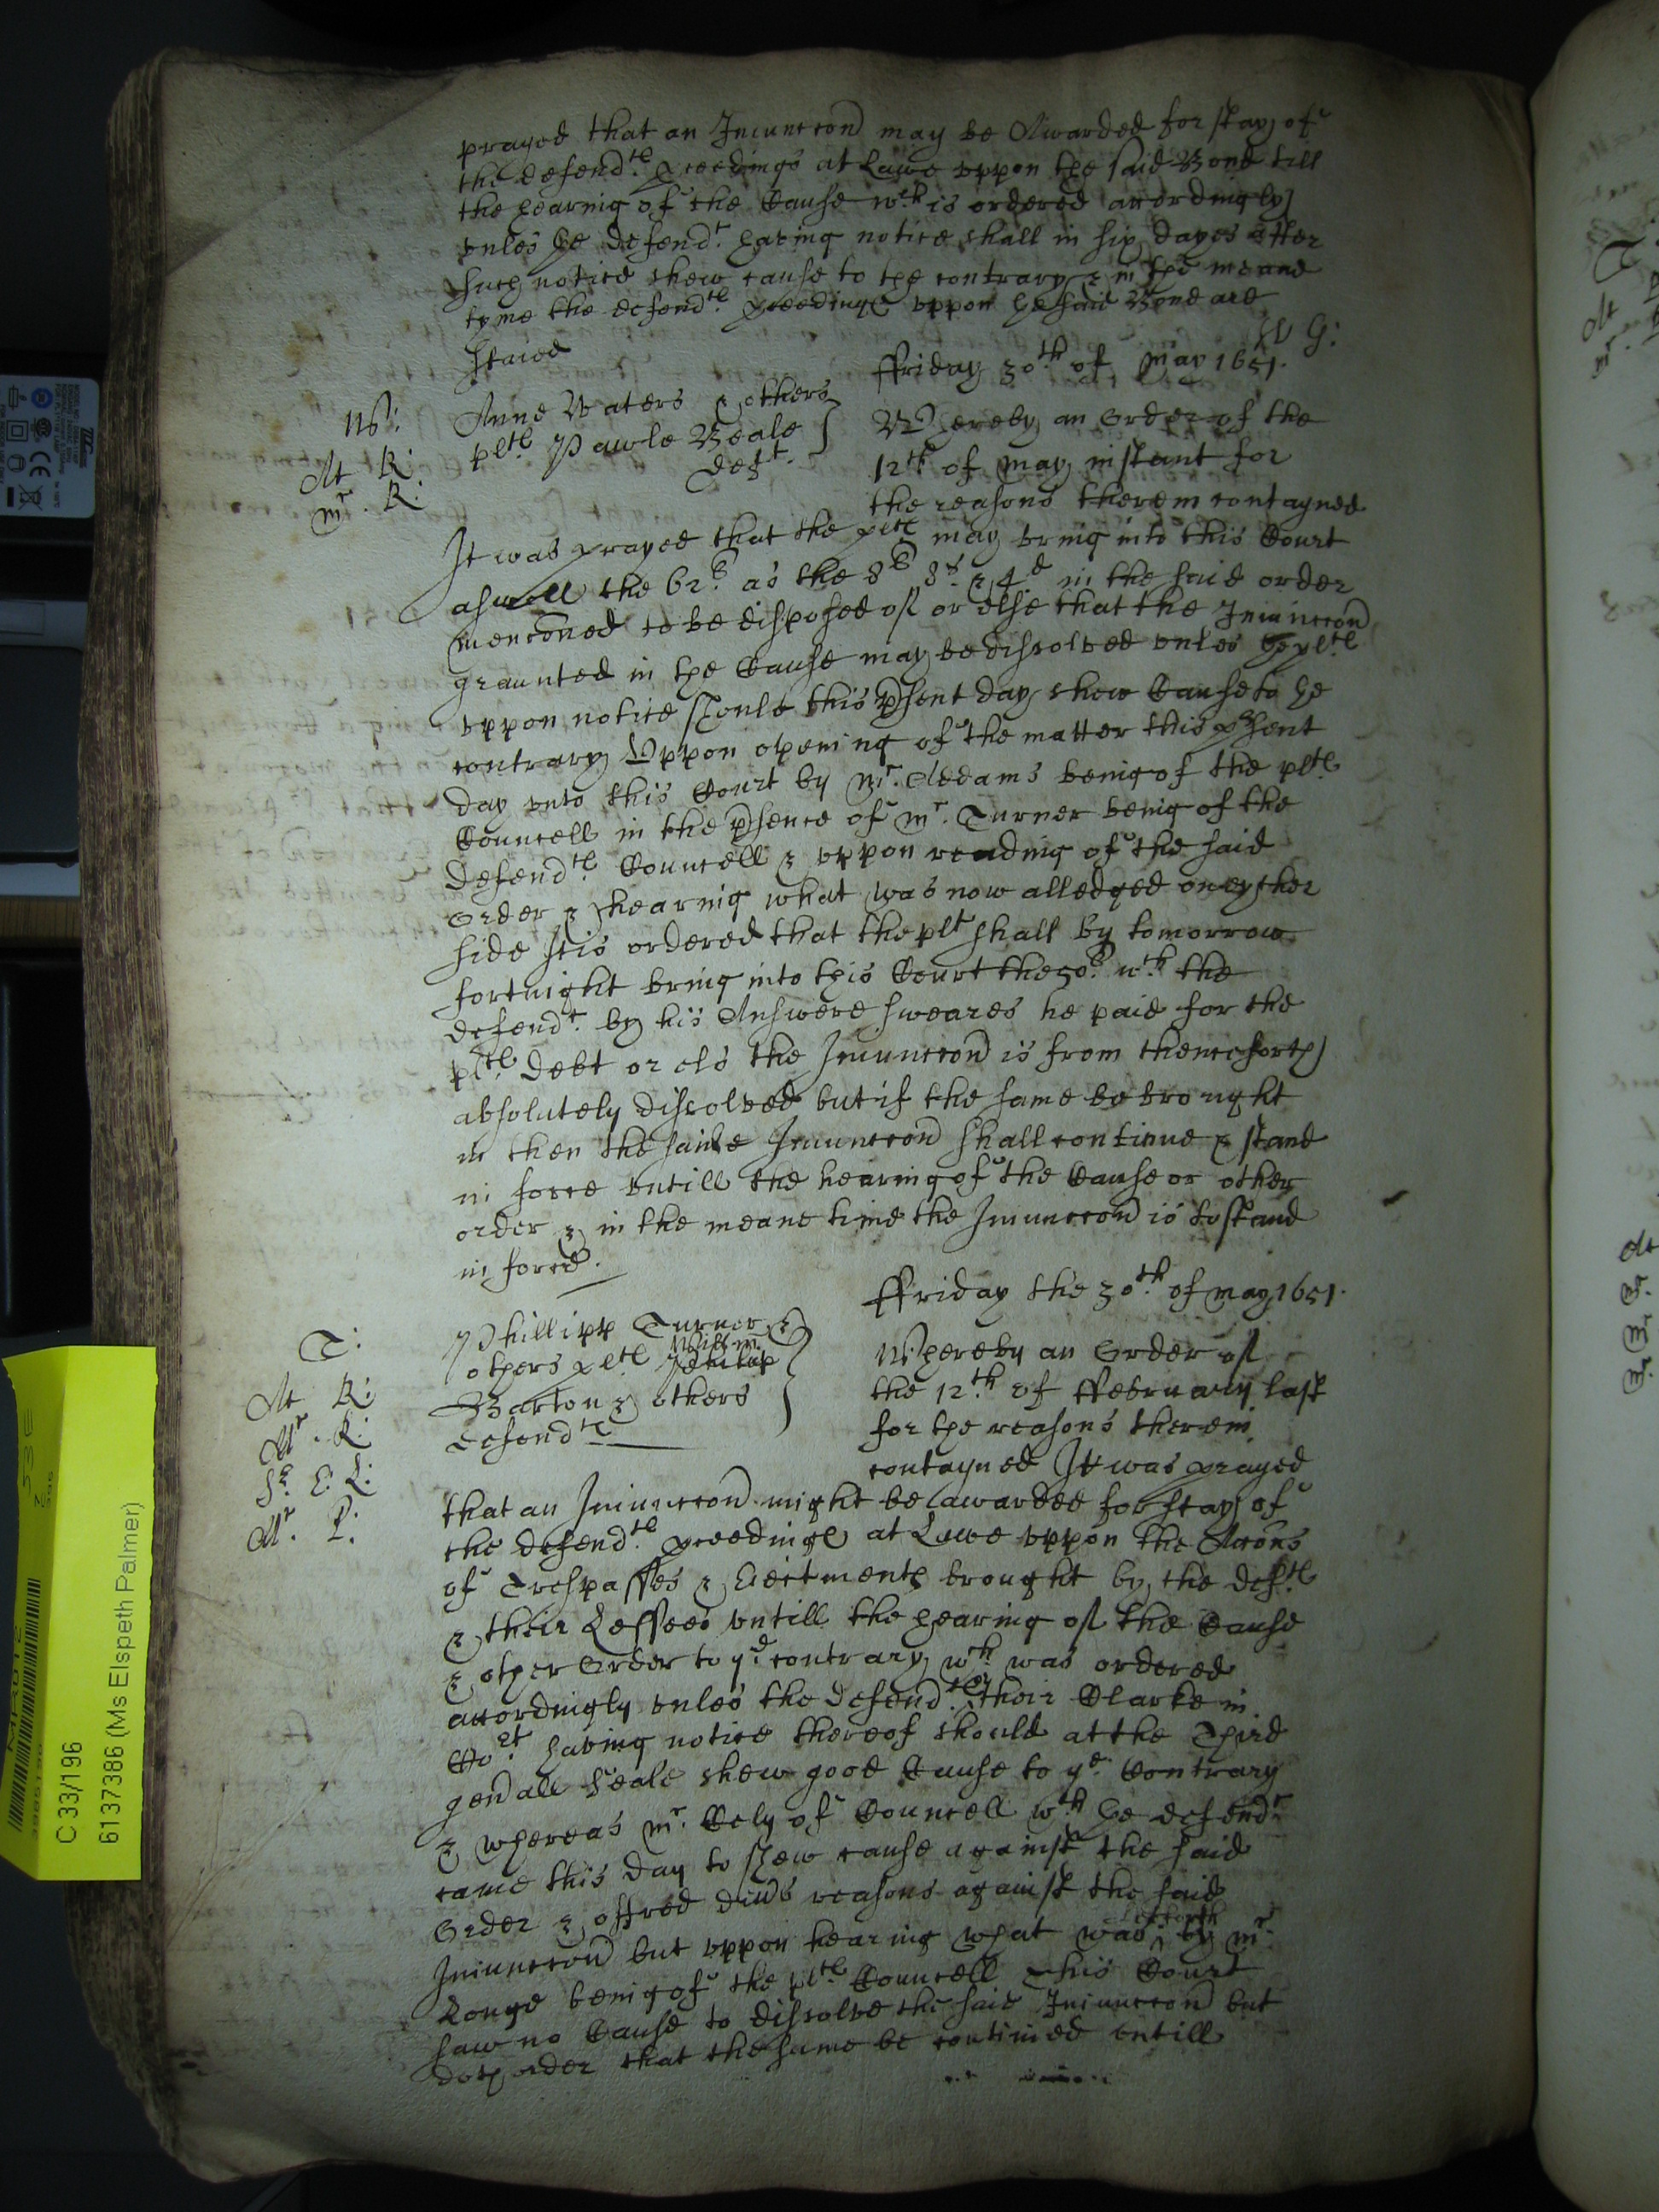 prayed that an Iniunccon may be Awarded for stay of
the defendts. pceedings at Lawe vppon the said Bond till
the hearing of the Cause wch. is ordered accordingly
vnles the defendt. haveing notice shall in six dayes after
such notice shew cause to the contrary & in the meane
tyme the defendts. pceedings vppon the said Bond are
Staied
W G:
ffriday 30th. of May 1651.
Ws:
At R:
mr. R:
Anne Waters & others
plts. Pawle Beale
deft.
Whereby an Order of the
12th of may instant for
the reasons therein contayned
It was prayed that the plts may bring into this Court
aswell the 62l. as the 8l 8s. & 4d in the said order
mencōned to be disposed of or else that the Iniunccon
graunted in the Cause may be dissolved vnles the plts
vppon notice should this psent day shew Cause to the
contrary Vppon opening of the matter this psent
day vnto this Court by mr. Addams being of the plts.
Councell in the psence of mr. Turner being of the
defendts. Councell & vppon reading of the said
Order & hearing what was now alledged on eyther
side It is ordered that the plt shall by tomorrow
fortnight bring into this Court the 50l. wch the
defendt. by his Answere sweares he paid for the
plts. debt or els the Iniunccon is from thenceforth
absolutely dissolved but if the same be brought
in then the saide Iniunccon shall continue & stand
in force vntill the hearing of the Cause or other
order & in the meane time the Iniunccon is to stand
in force.
ffriday the 30th. of may 1651.
T:
At R:
Mr. R:
Sr. E: L:
Mr. P:
Phillipp Turner &
others plts. Willm.
Barton & others
defendts
Whereby an Order of
the 12th. of ffebruary last
for the reasons therein
contayned It was prayed
that an Iniunccon might be awarded for stay of
the defendts. pceedings at Lawe vppon the Accons
of Trespasses & Eiectments brought by the defts.
& their Lessees vntill the hearing of the Cause
& other Order to ye. contrary wch. was ordered
accordingly vnles the defendts. their Clarke in
Cort. having notice thereof should at the Third
genall Seale shew good Cause to ye. Contrary
& whereas mr. Cely of Councell wth the defendts
came this day to shew cause against the said
Order & offred divs reasons against the said
Iniunccon but vppon hearing what was by mr.
Longe being of the plts. Councell this Court
saw no Cause to dissolve the said Iniunccon but
doth order that the same be continued vntill
C 33/196
6137386 (Ms Elspeth Palmer)